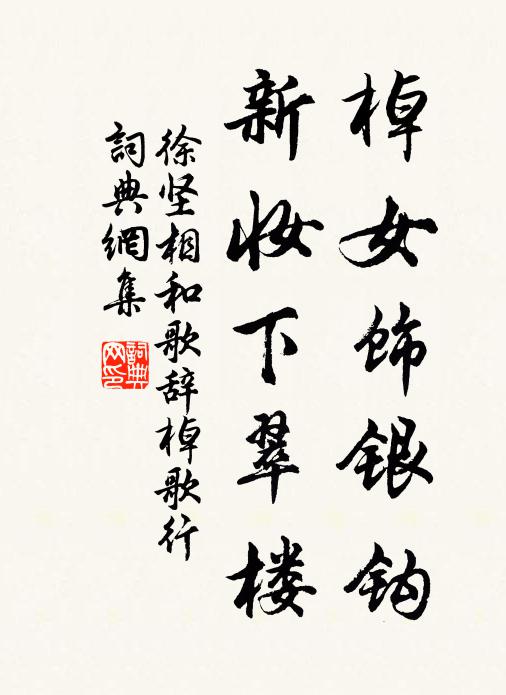 棹女饰银钩
新妆下翠楼
徐坚相和歌辞棹歌行
詞典網集
詞典网印